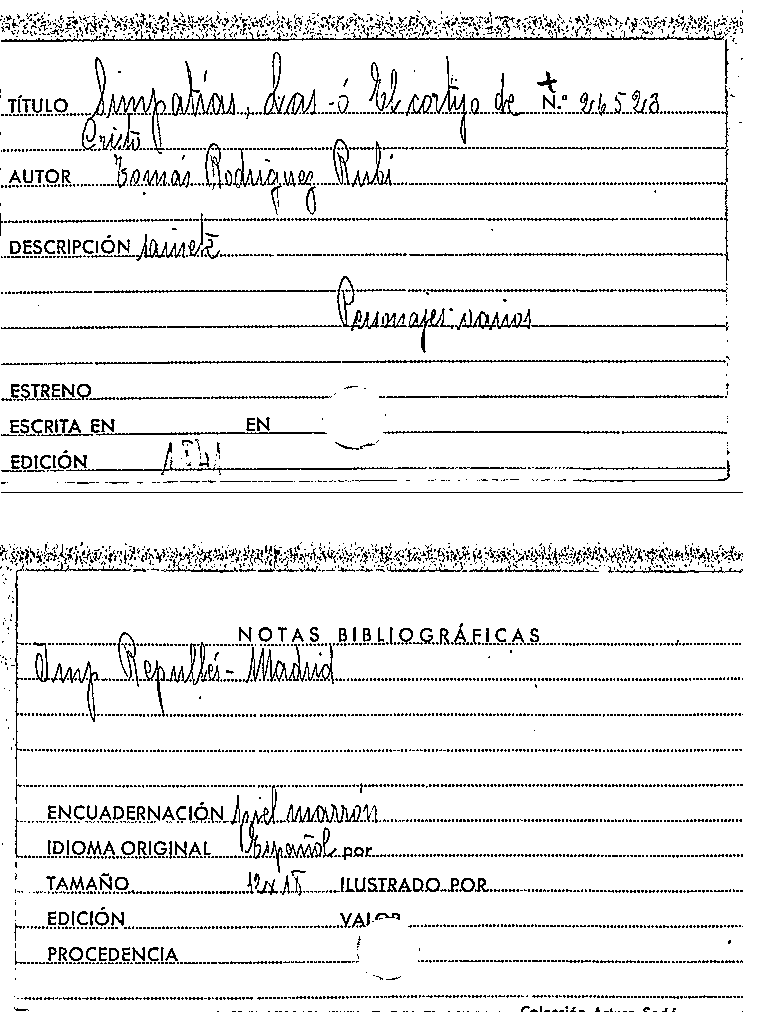 TÍTULO Simpatías, Las - ó El cortijo de N.º 26523
Cristo
AUTOR Tomás Rodríguez Rubi
DESCRIPCIÓN sainete
Personajes: varios
ESTRENO
ESCRITA EN EN
EDICIÓN
NOTAS BIBLIOGRÁFICAS
Imp Repullés - Madrid
ENCUADERNACIÓN piel marrón
IDIOMA ORIGINAL Español por
TAMAÑO ILUSTRADO POR
EDICIÓN VALOR
PROCEDENCIA
Colección Arturo Sedó